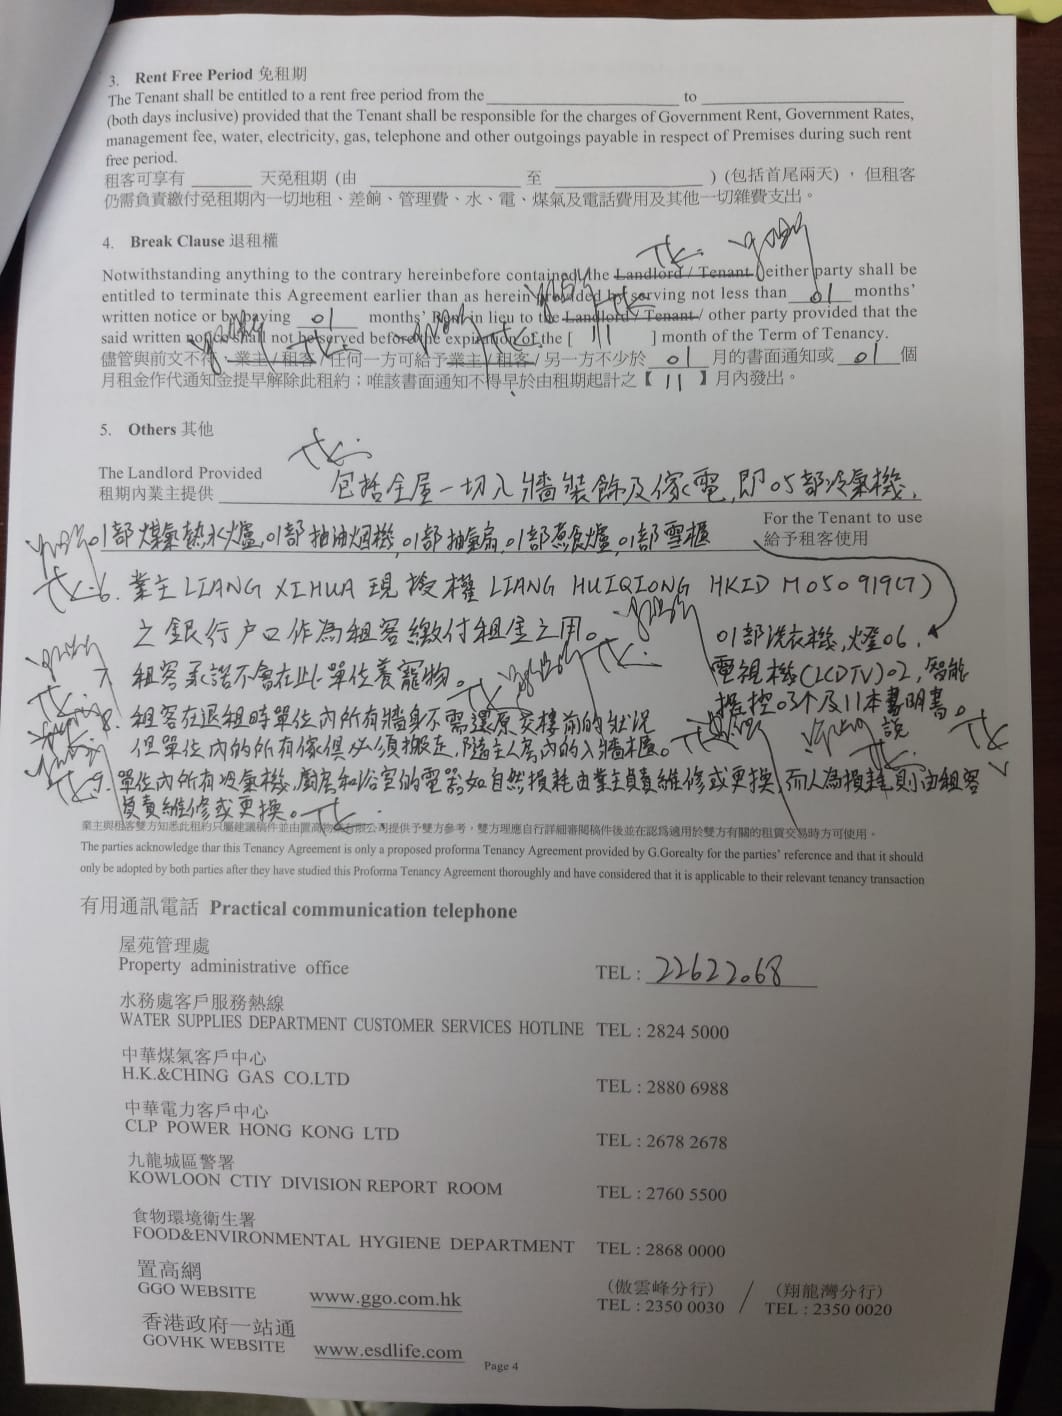 3. Rent Free Period 免租期
The Tenant shall be entitled to a rent free period from the ____ to ____
(both days inclusive) provided that the Tenant shall be responsible for the charges of Government Rent, Government Rates,
management fee, water, electricity, gas, telephone and other outgoings payable in respect of Premises during such rent
free period.
租客可享有 ____ 天免租期 (由 ____ 至 ____ ) (包括首尾兩天)，但租客
仍需負責繳付免租期內一切地租、差餉、管理費、水、電、煤氣及電話費用及其他一切雜費支出。
4. Break Clause 退租權
Notwithstanding anything to the contrary hereinbefore contained, the Landlord / Tenant / either party shall be
entitled to terminate this Agreement earlier than as herein provided by serving not less than 01 months'
written notice or by paying 01 months' Rent in lieu to the Landlord / Tenant / other party provided that the
said written notice shall not be served before the expiration of the [ 11 ] month of the Term of Tenancy.
儘管與前文不符，業主/租客/任何一方可給予業主/租客/另一方不少於 01 月的書面通知或 01 個
月租金作代通知金提早解除此租約；唯該書面通知不得早於由租期起計之【 11 】月內發出。
5. Others 其他
The Landlord Provided
租期內業主提供 包括全屋一切入牆裝飾及傢電，即05部冷氣機，
01部煤氣熱水爐，01部抽油烟機，01部抽氣扇，01部煮食爐，01部雪櫃
For the Tenant to use
給予租客使用
01部洗衣機，燈06，
電視機(LCDTV)02，智能
搖控03个及11本書明書。
說
6. 業主 LIANG XIHUA 現授權 LIANG HUIQIONG HKID M050919(7)
之銀行户口作為租客繳付租金之用。
7. 租客承諾不會在此單位養寵物。
8. 租客在退租時單位內所有牆身不需還原交樓前的狀況
但單位內的所有傢俱必須搬走，隨主人房內的入牆櫃。
9. 單位內所有冷氣機，廚房和浴室的電器如自然損耗由業主負責維修或更換，而人為損耗則由租客
負責維修或更換。
業主與租客雙方知悉此租約只屬建議稿件並由置高物業有限公司提供予雙方參考，雙方理應自行詳細審閱稿件後並在認爲適用於雙方有關的租賃交易時方可使用。
The parties acknowledge thar this Tenancy Agreement is only a proposed proforma Tenancy Agreement provided by G.Gorealty for the parties' reference and that it should
only be adopted by both parties after they have studied this Proforma Tenancy Agreement thoroughly and have considered that it is applicable to their relevant tenancy transaction
有用通訊電話 Practical communication telephone
屋苑管理處
Property administrative office TEL : 22622068
水務處客戶服務熱線
WATER SUPPLIES DEPARTMENT CUSTOMER SERVICES HOTLINE TEL : 2824 5000
中華煤氣客戶中心
H.K.&CHING GAS CO.LTD TEL : 2880 6988
中華電力客戶中心
CLP POWER HONG KONG LTD TEL : 2678 2678
九龍城區警署
KOWLOON CTIY DIVISION REPORT ROOM TEL : 2760 5500
食物環境衛生署
FOOD&ENVIRONMENTAL HYGIENE DEPARTMENT TEL : 2868 0000
置高網 (傲雲峰分行) / (翔龍灣分行)
GGO WEBSITE www.ggo.com.hk TEL : 2350 0030 TEL : 2350 0020
香港政府一站通
GOVHK WEBSITE www.esdlife.com
Page 4